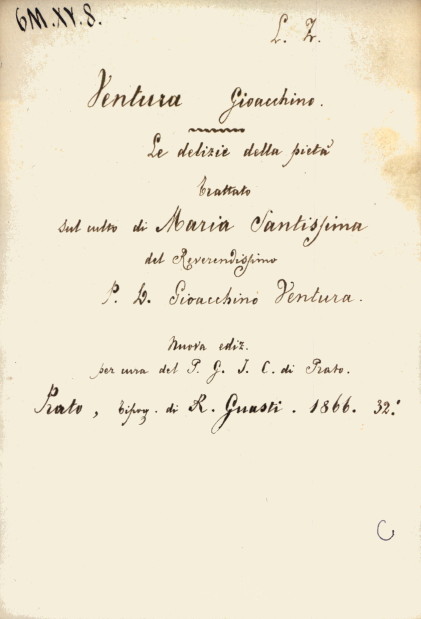 6M.XV.8.
L. Z.
Ventura Gioacchino.
Le delizie della pietà
trattato
sul culto di Maria Santissima
del Reverendissimo
P. D. Gioacchino Ventura.
Nuova ediz.
per cura del P. G. I. C. di Prato.
Prato, tipog. di R. Guasti. 1866. 32.°
C